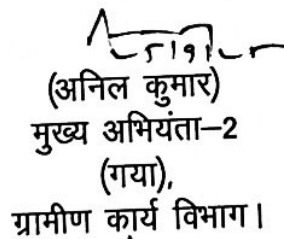 (अनिल कुमार)
मुख्य अभियंता–2
(गया),
ग्रामीण कार्य विभाग।